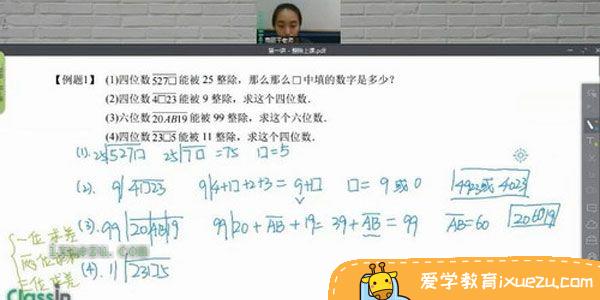 第一讲-整除上课.pdf
【例题1】 (1)四位数527□能被 25 整除，那么那么□中填的数字是多少？
(2)四位数4□23能被 9 整除，求这个四位数．
(3)六位数20AB19能被 99 整除，求这个六位数．
(4)四位数23□5能被 11 整除，求这个四位数．
(1). 25|527□ 25|7□ =75 □=5
(2). 9|4□23 9|4+□+2+3 = 9+□ □ = 9 或 0 4923或4023
(3). 99|20AB19 99|20+AB+19 = 39+AB = 99 AB=60 206019
(4). 11|23□5
一位求差
两位求和
三位求差
ixuezu.com
ClassIn
爱学教育ixuezu.com